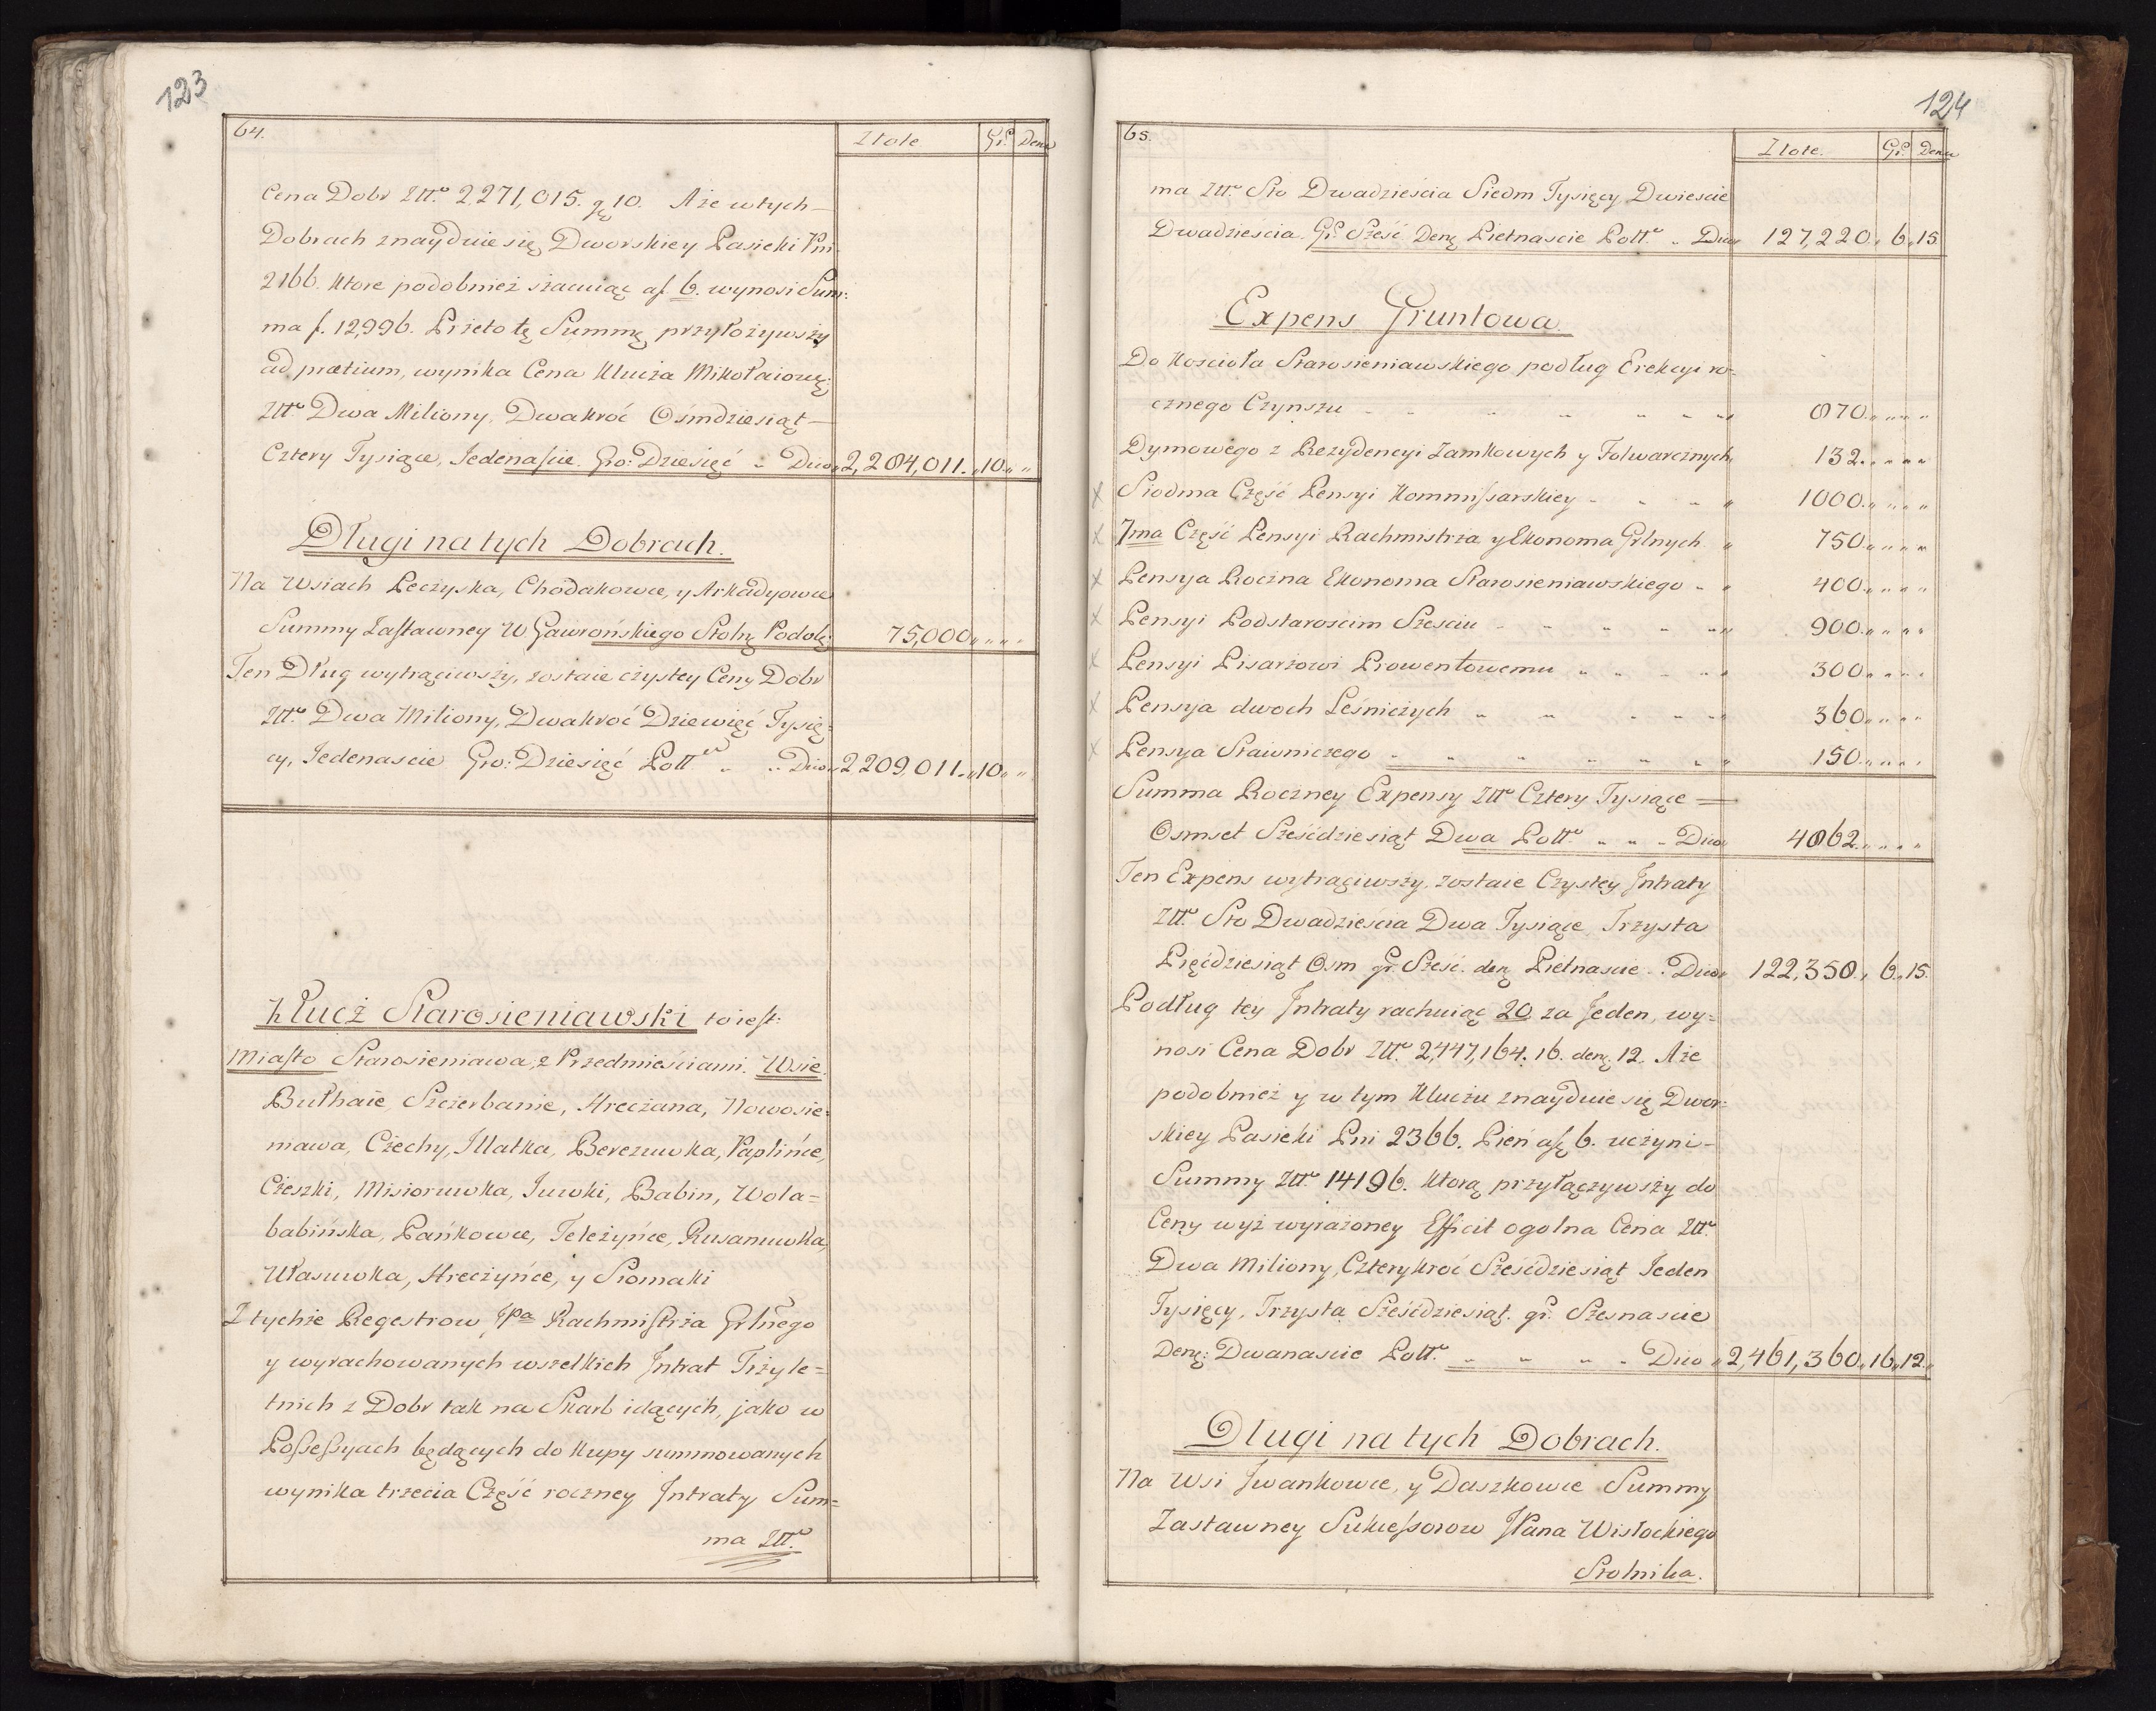 123
64.
Złote Gr. Dena
Cena Dobr Złł. 2271,015. gr 10. Aże w tych
Dobrach znayduie się Dworskiey Pasieki Pni
2166. ktore podobnież szacuiąc a f. 6. wynosi Sum:
ma f. 12,996. Przeto tę Summę przyłożywszy
ad pretium, wynika Cena Klucza Mikołaiow:
Złł Dwa Miliony, Dwakroć Ośmdziesiąt
Cztery Tysiące, Jedenaście. Gro: Dziesięć „ Dico „ 2,284,011. „ 10 „ „
Długi na tych Dobrach.
Na Wsiach Peczyska, Chodakowce, y Arkadyowce
Summy Zastawney W Gawrońskiego Stoln Podol: 75,000 „ „ „
Ten Dług wytrąciwszy, zostaie czystey Ceny Dobr
Złł. Dwa Miliony, Dwakroć Dziewięć Tysię:
cy, Jedenaście Gro: Dziesięć Poll „ „ Dico „ 2209,011. „ 10 „ „
Klucz Starosieniawski to iest:
Miasto Starosieniawa, z Przedmieściami. Wsie
Buthaie, Szczerbanie, Hreczana, Nowosie:
niawa, Czechy, Illatka, Berezuwka, Paplińce,
Cieszki, Misioruwka, Juwki, Babin, Wola=
babińska, Pańkowce, Teleżyńce, Rusanuwka,
Własuwka, Hreczyńce, y Stomaki
Z tychże Regestrow JPa Rachmistrza Grlnego
y wyrachowanych wszelkich Jntrat Trzyle=
tnich z Dobr tak na Skarb idących, jako w
Possessyach będących do kupy summowanych
wynika trzecia Część roczney Jntraty Sum=
ma Złł.
124
65.
Złote. Gr. Dena
ma Złł. Sto Dwadzieścia Siedm Tysięcy Dwieście
Dwadzieścia. Gr. Sześć Den Pietnaście Poll. „ Dico 127,220. „ 6. „ 15
Expens Gruntowa.
Do Kościoła Starosieniawskiego podług Erekcyi ro=
cznego Czynszu „ „ „ „ „ „ 870. „ „ „
Dymowego z Rezydencyi Zamkowych y Folwarcznych „ 132. „ „ „
x Siodma Część Pensyi Kommissarskiey „ „ „ 1000. „ „ „
x 7ma Część Pensyi Rachmistrza y Ekonoma Grlnych „ 750. „ „ „
x Pensya Roczna Ekonoma Starosieniawskiego „ „ 400. „ „ „
x Pensyi Podstarościm Sześciu „ „ „ „ „ 900. „ „ „
x Pensyi Pisarzowi Prowentowemu „ „ „ „ 300. „ „ „
x Pensya dwoch Leśniczych „ „ „ „ „ 360. „ „ „
x Pensya Stawniczego „ „ „ „ „ „ 150. „ „ „
Summa Roczney Expensy Złł Cztery Tysiące
Osmset Sześćdziesiąt Dwa Poll. „ „ „ Dico 4862. „ „ „
Ten Expens wytrąciwszy, zostaie Czystey Jntraty
Złł. Sto Dwadzieścia Dwa Tysiące, Trzysta
Pięćdziesiąt Osm gr. Sześć. den Pietnaście „ Dico „ 122,358. „ 6. „ 15.
Podług tey Jntraty rachuiąc 20 za Jeden, wy=
nosi Cena Dobr Złł. 2,447,164. 16. den. 12. Aże
podobnież y w tym Kluczu znayduie się Dwor:
skiey Pasieki Pni 2366. Pień a f 6. uczyni
Summy Złł. 14196. Ktorą przyłączywszy do
Ceny wyż wyrażoney Efficit ogolna Cena Złł.
Dwa Miliony, Czterykroć Sześćdziesiąt Jeden
Tysięcy, Trzysta Sześćdziesiąt. gr. Szesnaście
Den: Dwanaście Poll. „ „ „ „ Dico „ 2,461,360. „ 16. „ 12. „
Długi na tych Dobrach.
Na Wsi Jwankowce, y Daszkowce Summy
Zastawney Sukcessorow JPana Wisłockiego
Stolnika.